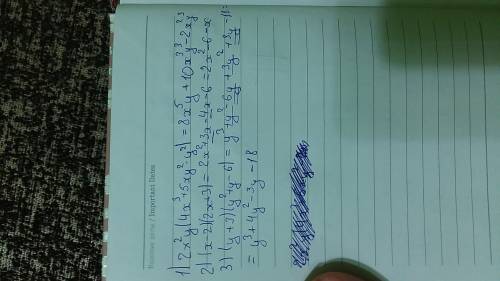 Muhim sana / Important Dates
1) 2x²y(4x³+5xy²-y²)=8x⁵y+10x³y³-2x²y³
2) (x-2)(2x+3)=2x²+3x-4x-6=2x²-6-x
3) (y+3)(y²+y-6)=y³+y²-6y+3y²+3y-18=
=y³+4y²-3y-18